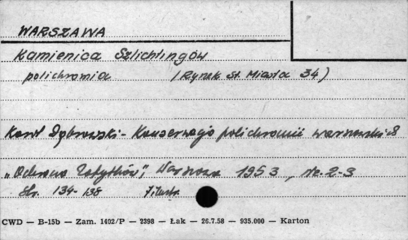 WARSZAWA
Kamienica Szlichtingów
polichromia (Rynek St. Miasta 34)
Karol Dąbrowski - Konserwacja polichromii warszawskich
"Ochrona Zabytków", Warszawa 1953, nr. 2-3
Str. 134-138
CWD — B-15b — Zam. 1402/P — 2398 — Łak — 26.7.58 — 935.000 — Karton